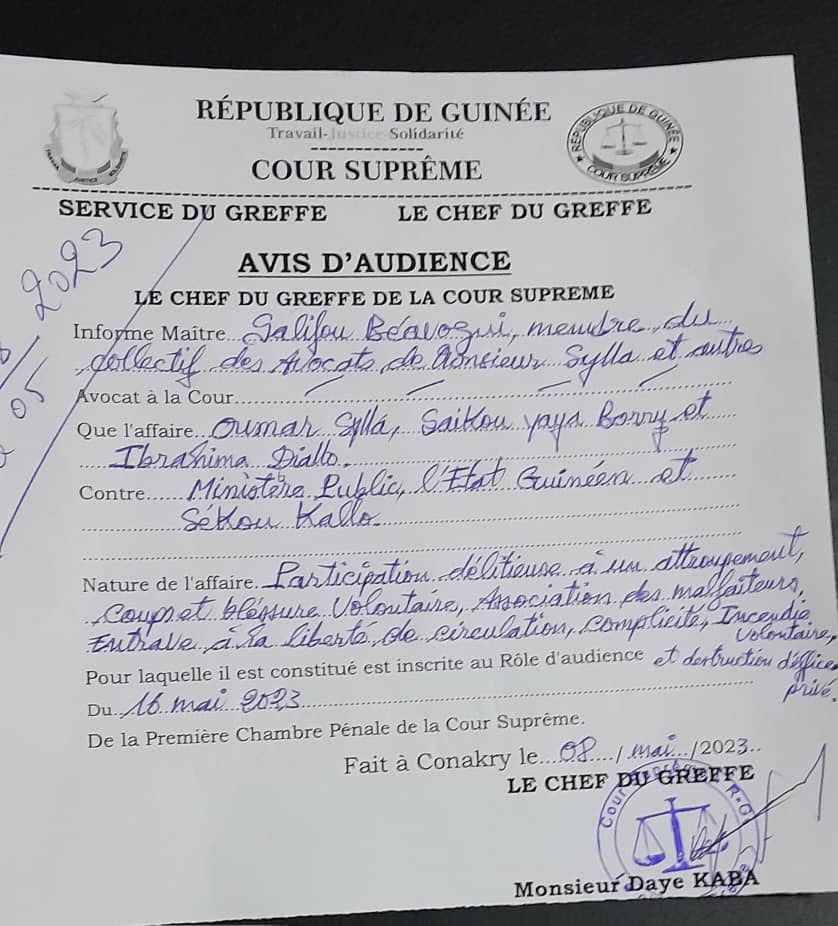 RÉPUBLIQUE DE GUINÉE
Travail-Justice-Solidarité
COUR SUPRÊME
RÉPUBLIQUE DE GUINÉE
COUR SUPRÊME
SERVICE DU GREFFE LE CHEF DU GREFFE
AVIS D'AUDIENCE
LE CHEF DU GREFFE DE LA COUR SUPREME
2023
05
Informe Maître Galifou Béavogui, membre du
collectif des Avocats de Monsieur Sylla et autres
Avocat à la Cour
Que l'affaire Oumar Sylla, Saikou Yaya Barry et
Ibrahima Diallo
Contre Ministère Public, l'Etat Guinéen et
Sékou Kallo
Nature de l'affaire Participation délitieuse à un attroupement,
Coup et bléssure Volontaire, Association des malfaiteurs,
Entrave à la liberté de circulation, complicité, Incendie
Volontaire,
Pour laquelle il est constitué est inscrite au Rôle d'audience et destruction d'éffice
privé.
Du 16 mai 2023
De la Première Chambre Pénale de la Cour Suprême.
Fait à Conakry le 08/mai/2023
LE CHEF DU GREFFE
Monsieur Daye KABA